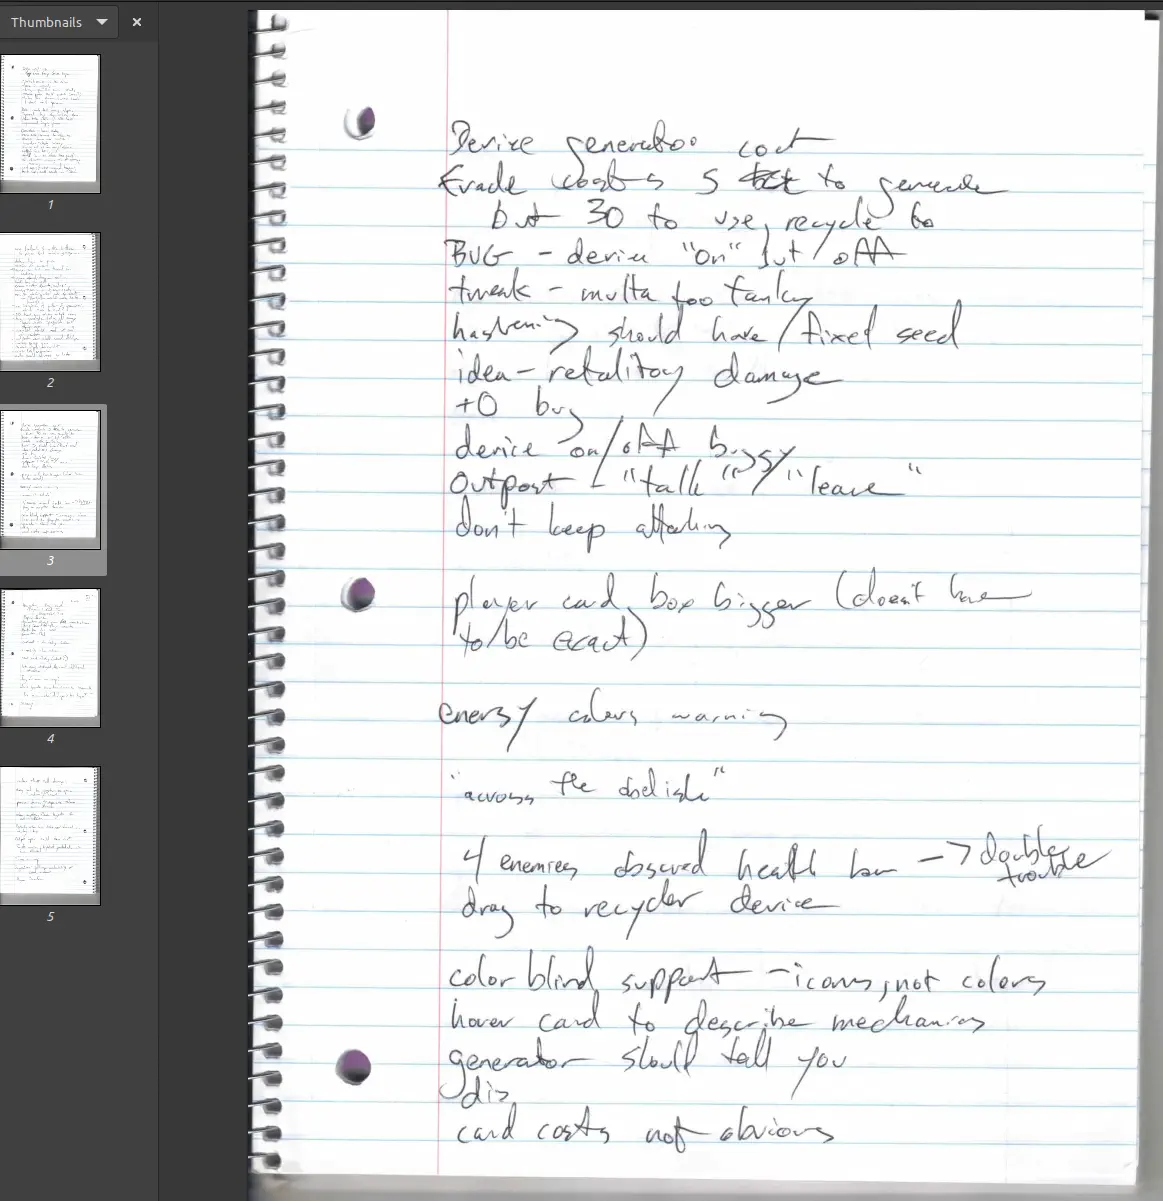 Thumbnails
1
2
3
4
5
Device generator cost
Evade costs 5 to generate
but 30 to use, recycle to
BUG - device "on" but off
tweak - multa too tanky
hastening should have fixed seed
idea - retalitory damage
+0 bug
device on/off buggy
outpost - "talk" / "leave"
don't keep attacking
player card box bigger (doesn't have
to be exact)
energy colors warning
"across the
4 enemies obscured health bar -> double
trouble
drag to recycler device
color blind support - icons, not colors
hover card to describe mechanics
generator should tell you
card costs not obvious